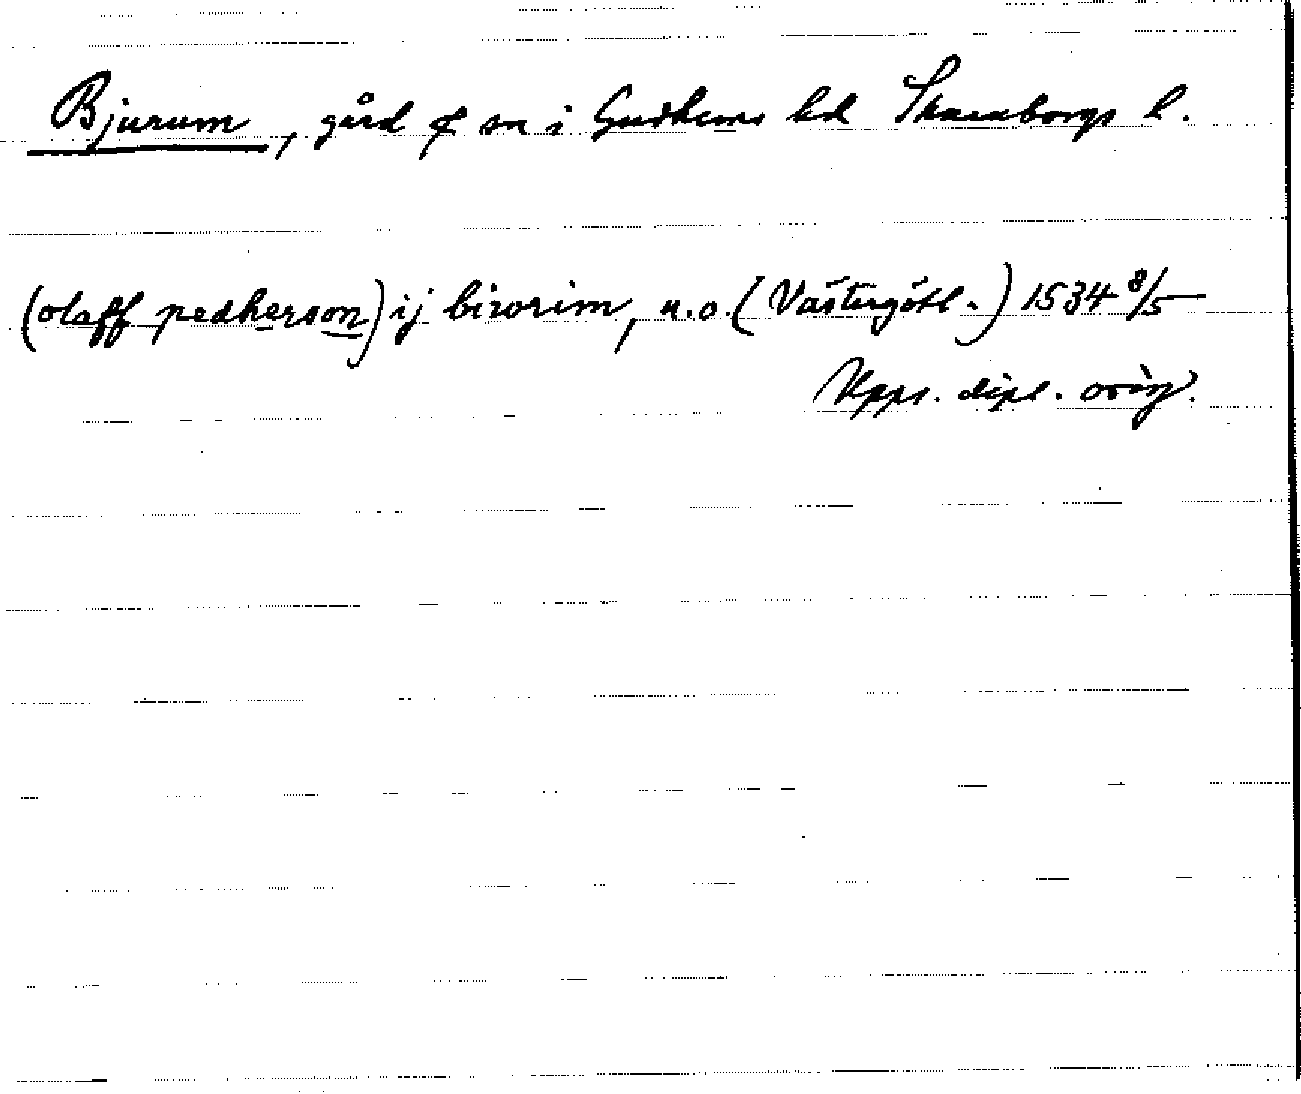 Bjurum, gård o sn i Gudhems hd Skaraborgs l.
(olaff pedherson) ij birorim, u.o. (Västergötl.) 1534 8/5
Upps. dipl. orig.